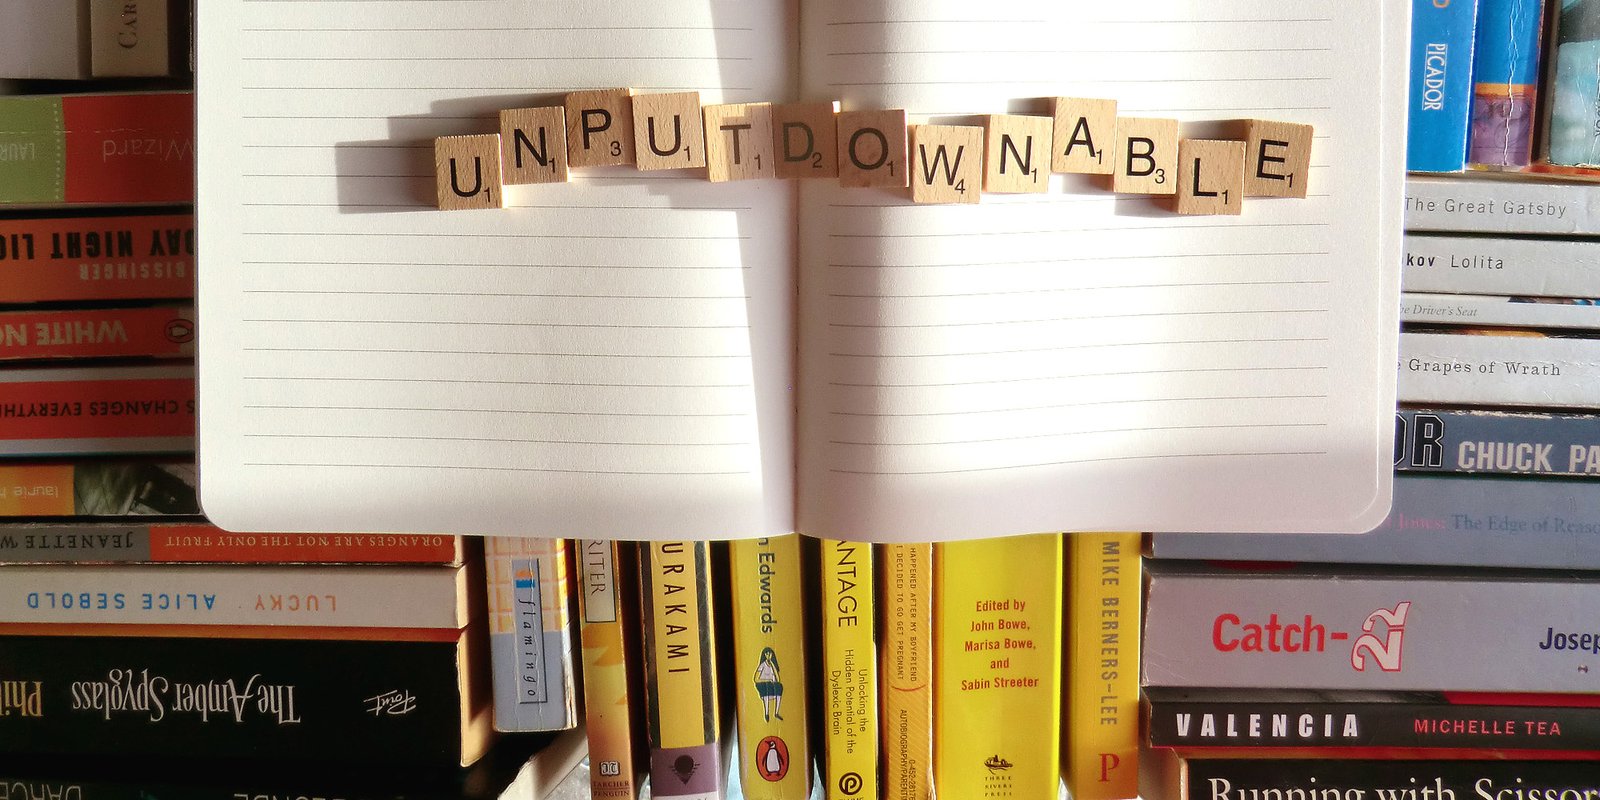 UNPUTDOWNABLE
U1 N1 P3 U1 T1 D2 O1 W4 N1 A1 B3 L1 E1
Wizard
LAUR
DAY NIGHT LIG
BISSINGER
WHITE NO
S CHANGES EVERYTHI
laurie
ORANGES ARE NOT THE ONLY FRUIT
JEANETTE W
LUCKY ALICE SEBOLD
Point
The Amber Spyglass
Phil
flamingo
RITER
TARCHER
PENGUIN
URAKAMI
n Edwards
ANTAGE
Unlocking the
Hidden Potential of the
Dyslexic Brain
HAPPENED AFTER MY BOYFRIEND
I DECIDED TO GO GET PREGNANT)
Edited by
John Bowe,
Marisa Bowe,
and
Sabin Streeter
THREE
RIVERS
PRESS
MIKE BERNERS-LEE
P
PICADOR
The Great Gatsby
kov Lolita
he Driver's Seat
e Grapes of Wrath
OR CHUCK PA
Jones: The Edge of Reaso
Catch-22
Josep
VALENCIA MICHELLE TEA
Running with Scissor